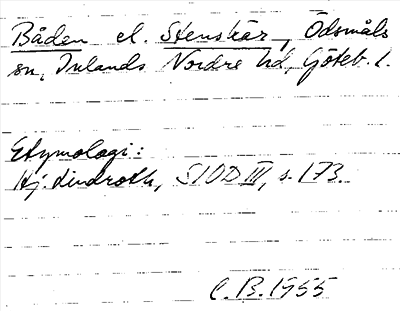 Båden el. Stenskär, Ödsmåls
sn, Inlands Nordre hd, Göteb. l.
Etymologi:
Hj. Lindroth, SIOD III, s. 173.
C.B. 1955